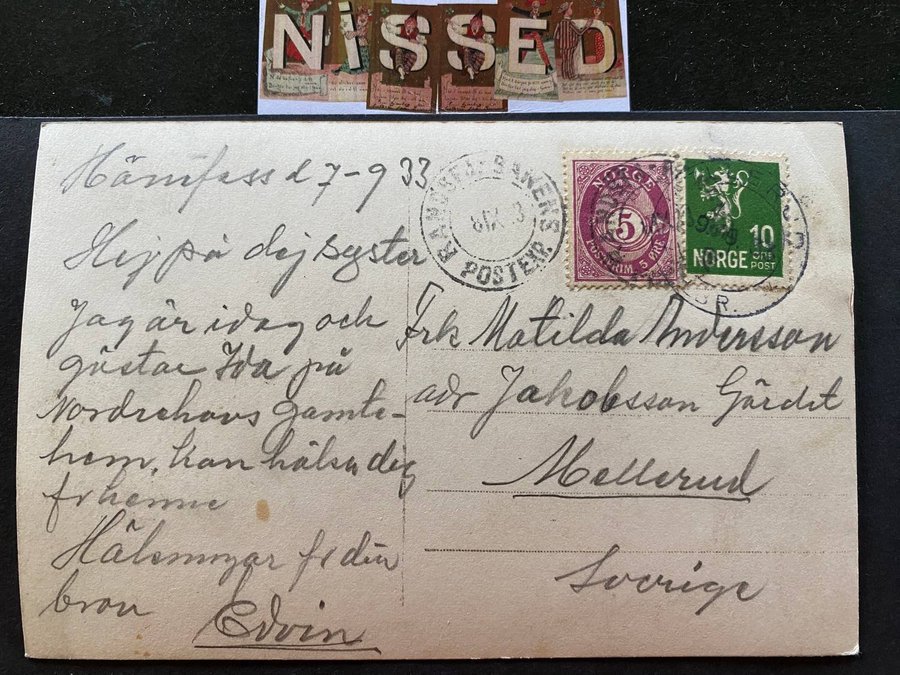 NISSED
Hånifass d 7-9 33
Hej på dej syster
Jag är idag och
gästar Ida på
Nordrehovs Gamle-
hem, kan hälsa dej
fr henne
Hälsningar fr din
bror
Edvin
RANDSFJ.BANENS
POSTEXP.
NORGE
5
POSTFRIM. 5 ØRE
10
ØRE
NORGE POST
Frk Matilda Andersson
adr Jakobsson Gärdet
Mellerud
Sverige